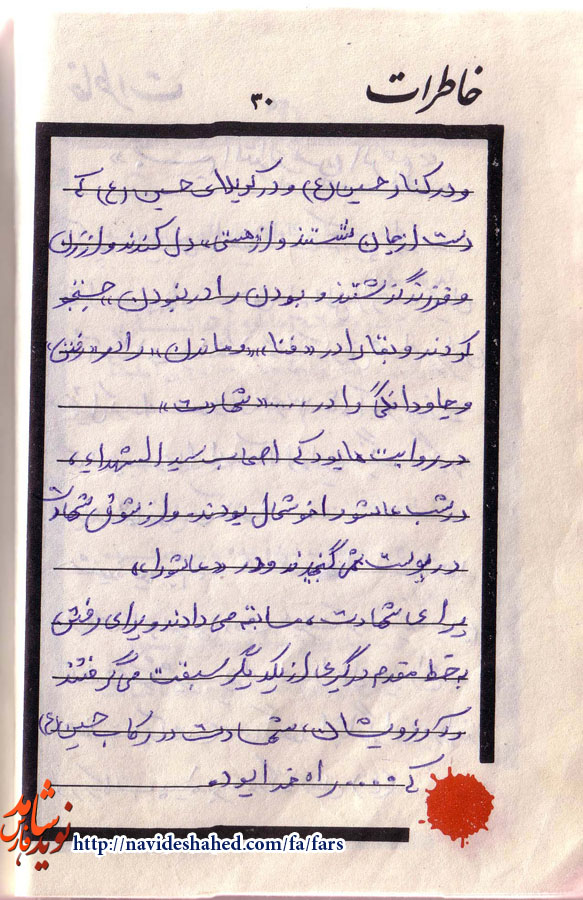 خاطرات
۳۰
و در کنار حسین (ع) و در کربلای حسین (ع) که
دست از جان شستند و از «هستی» دل کندند و از زن
و فرزند گذشتند و بودن را در نبودن» جستجو
کردند و بقا را در «فنا» و «ماندن» را در «رفتن»
و جاودانگی را در ..... «شهادت»
در روایت ها بود که اصحاب سید الشهداء،
در شب عاشورا خوشحال بودند. و از شوق شهادت
در پوست نمی گنجیدند و در «عاشورا»
برای شهادت، مسابقه می دادند و برای رفتن
به خط مقدم درگیری از یکدیگر سبقت می گرفتند
و آرزویشان، شهادت در رکاب حسین (ع)
که .... راه خدا بود.
نوید شاهد فارس
http://navideshahed.com/fa/fars